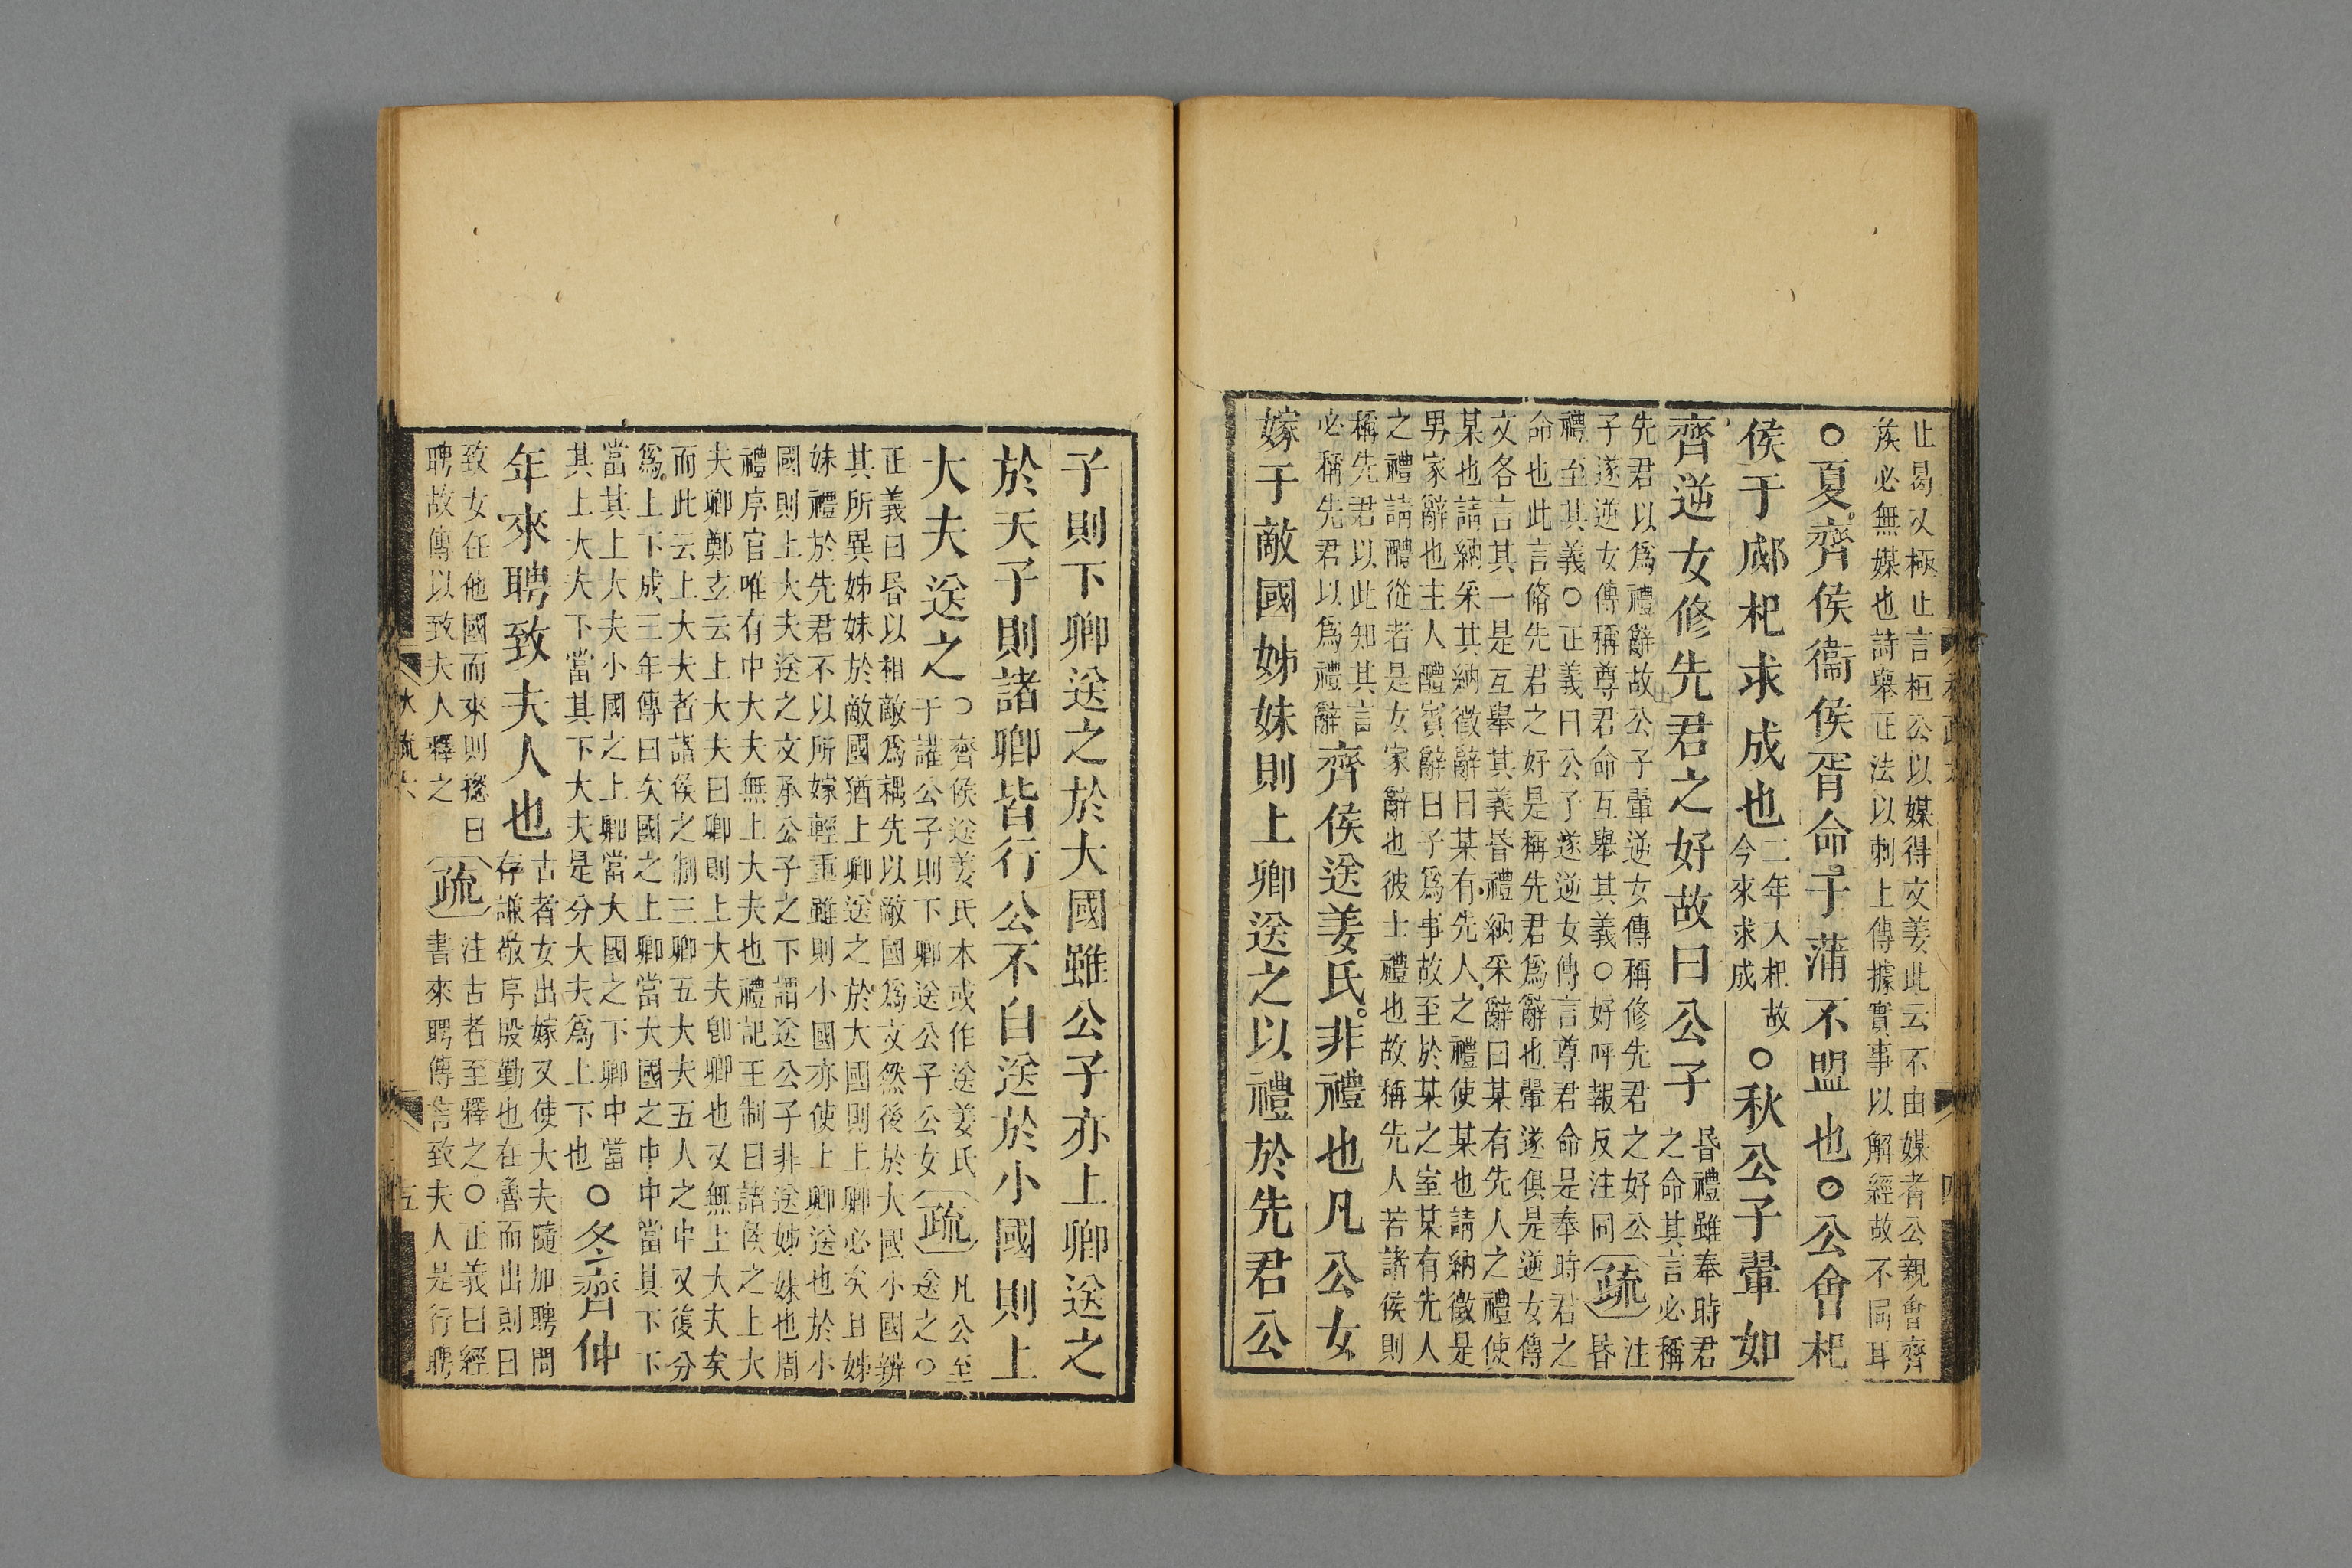 止曷又極止言桓公以媒得文姜此云不由媒者公親會齊
族必無媒也詩舉正法以刺上傳據實事以解經故不同耳
○夏齊侯衞侯胥命于蒲不盟也○公會杞
侯于郕杞求成也
二年入杞故
今來求成
○秋公子翬如
齊逆女修先君之好故曰公子
昏禮雖奉時君
之命其言必稱
先君以爲禮辭故公子翬逆女傳稱修先君之好公
子遂逆女傳稱尊君命互舉其義○好呼報反注同
疏
注
昏
禮至其義○正義曰公子遂逆女傳言尊君命是奉時君之
命也此言脩先君之好是稱先君爲辭也翬遂俱是逆女傳
文各言其一是互舉其義昏禮納采辭曰某有先人之禮使
某也請納采其納徵辭曰某有先人之禮使某也請納徵是
男家辭也主人醴賓辭曰子爲事故至於某之室某有先人
之禮請醴從者是女家辭也彼士禮也故稱先人若諸侯則
稱先君以此知其言
必稱先君以爲禮辭
齊侯送姜氏非禮也凡公女
嫁于敵國姊妹則上卿送之以禮於先君公
子則下卿送之於大國雖公子亦上卿送之
於天子則諸卿皆行公不自送於小國則上
大夫送之
○齊侯送姜氏本或作送姜氏
于讙公子則下卿送公子公女
疏
凡公至
送之○
正義曰昏以相敵爲耦先以敵國爲文然後於大國小國辨
其所異姊妹於敵國猶上卿送之於大國則上卿必矣且姊
妹禮於先君不以所嫁輕重雖則小國亦使上卿送也於小
國則上大夫送之文承公子之下謂送公子非送姊妹也周
禮序官唯有中大夫無上大夫也禮記王制曰諸侯之上大
夫卿鄭玄云上大夫曰卿則上大夫卽卿也又無上大夫矣
而此云上大夫者諸侯之制三卿五大夫五人之中又復分
爲上下成三年傳曰次國之上卿當大國之中中當其下下
當其上大夫小國之上卿當大國之下卿中當
其上大夫下當其下大夫是分大夫爲上下也
○冬齊仲
年來聘致夫人也
古者女出嫁又使大夫隨加聘問
存謙敬序殷勤也在魯而出則曰
致女在他國而來則摠曰
聘故傳以致夫人釋之
疏
注古者至釋之○正義曰經
書來聘傳言致夫人是行聘